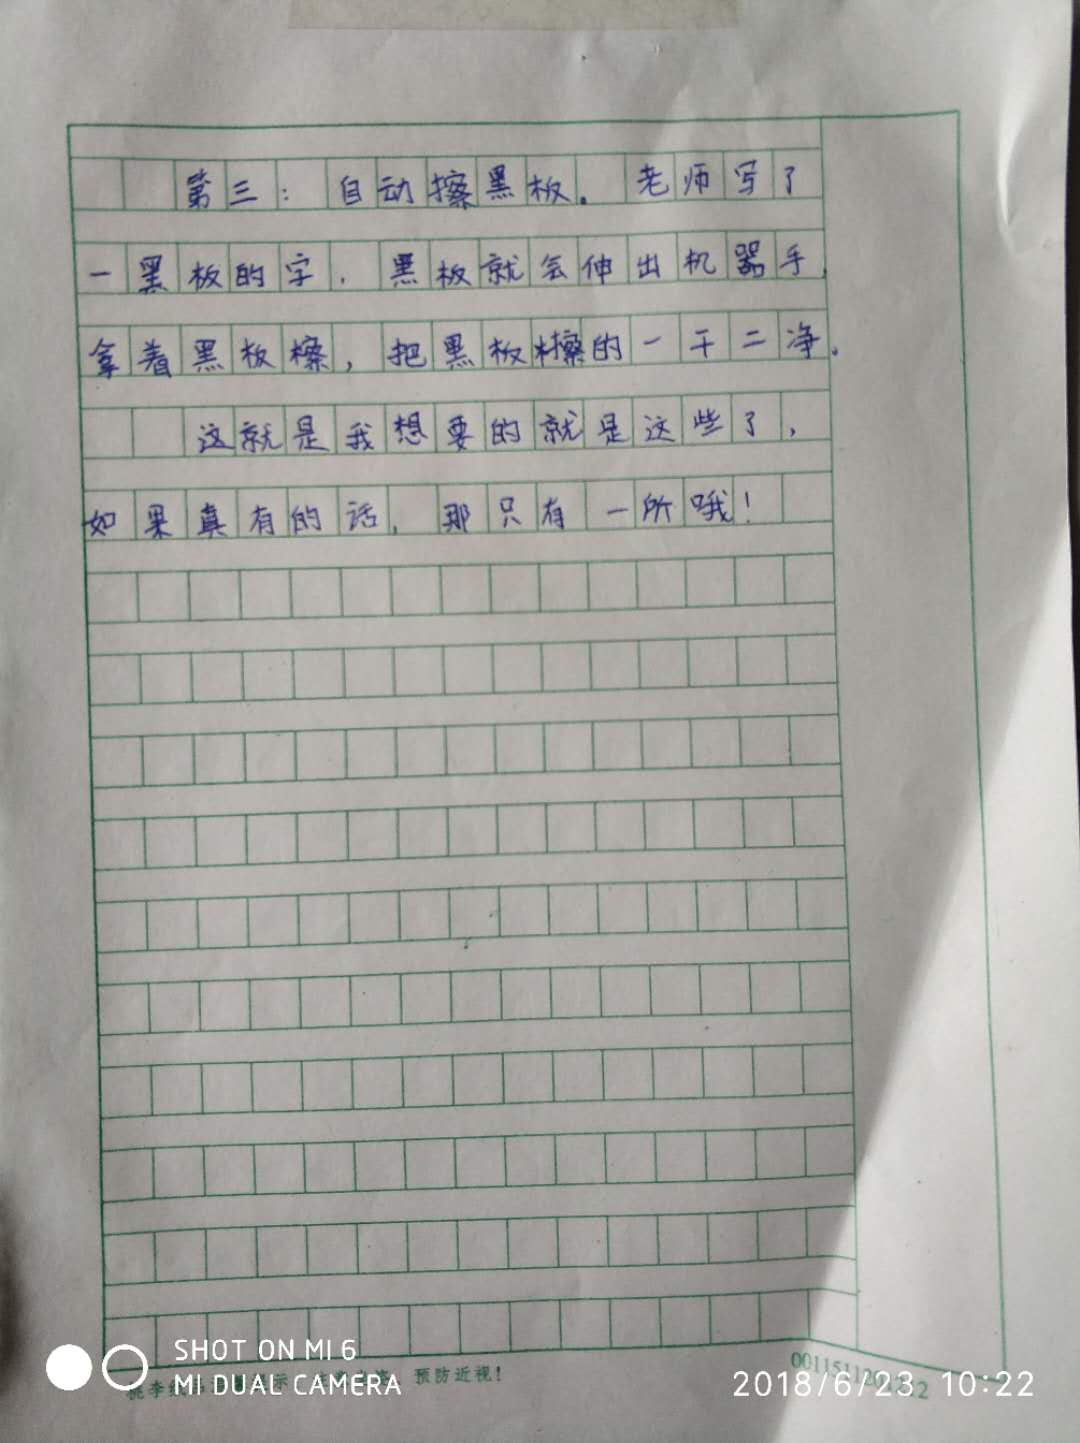 第三：自动擦黑板。老师写了
一黑板的字，黑板就会伸出机器手
拿着黑板檫，把黑板檫的一干二净。
这就是我想要的就是这些了，
如果真有的话，那只有一所哦！
SHOT ON MI 6
MI DUAL CAMERA
预防近视！
2018/6/23 10:22